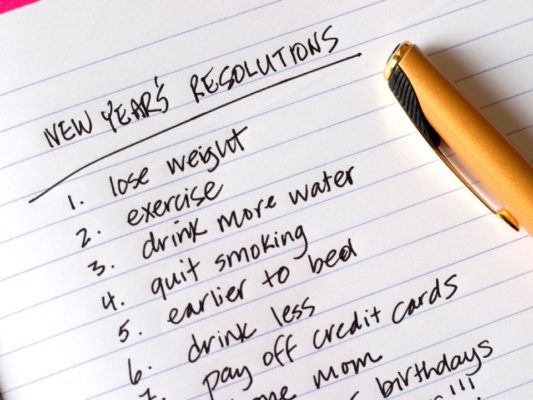 NEW YEAR'S RESOLUTIONS
1. lose weight
2. exercise
3. drink more water
4. quit smoking
5. earlier to bed
6. drink less
7. pay off credit cards
mom
birthdays
!!!